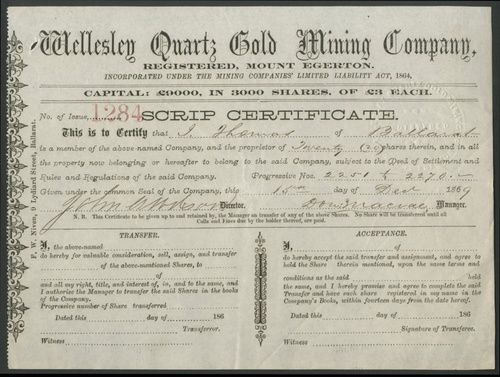 Wellesley Quartz Gold Mining Company,
REGISTERED, MOUNT EGERTON.
INCORPORATED UNDER THE MINING COMPANIES' LIMITED LIABILITY ACT, 1864.
CAPITAL: £9000, IN 3000 SHARES, OF £3 EACH.
No. of Issue, 1284 SCRIP CERTIFICATE.
This is to Certify that J. Thomas of Ballarat
is a member of the above-named Company, and the proprietor of Twenty (20) shares therein, and in all
the property now belonging or hereafter to belong to the said Company, subject to the Deed of Settlement and
Rules and Regulations of the said Company. Progressive Nos. 2251 to 2270
Given under the common Seal of the Company, this 15th day of Dec 1869
Director. Manager.
N. B. This Certificate to be given up to and retained by, the Manager on transfer of any of the above Shares. No Share will be transferred until all
Calls and Fines due by the holder thereof, are paid.
F. W. Niven, 3 Lydiard Street, Ballarat.
TRANSFER.
I, the above-named
do hereby for valuable consideration, sell, assign, and transfer
of the above-mentioned Shares, to
of
and all my right, title, and interest of, in, and to the same, and
I authorise the Manager to transfer the said Shares in the books
of the Company.
Progressive number of Share transferred
Dated this day of 186
Transferror.
Witness
ACCEPTANCE.
I,
do hereby accept the said transfer and assignment, and agree to
hold the Share therein mentioned, upon the same terms and
conditions as the said held
the same, and I hereby promise and agree to complete the said
Transfer and have such Share registered in my name in the
Company's Books, within fourteen days from the date hereof.
Dated this day of 186
Signature of Transferee.
Witness